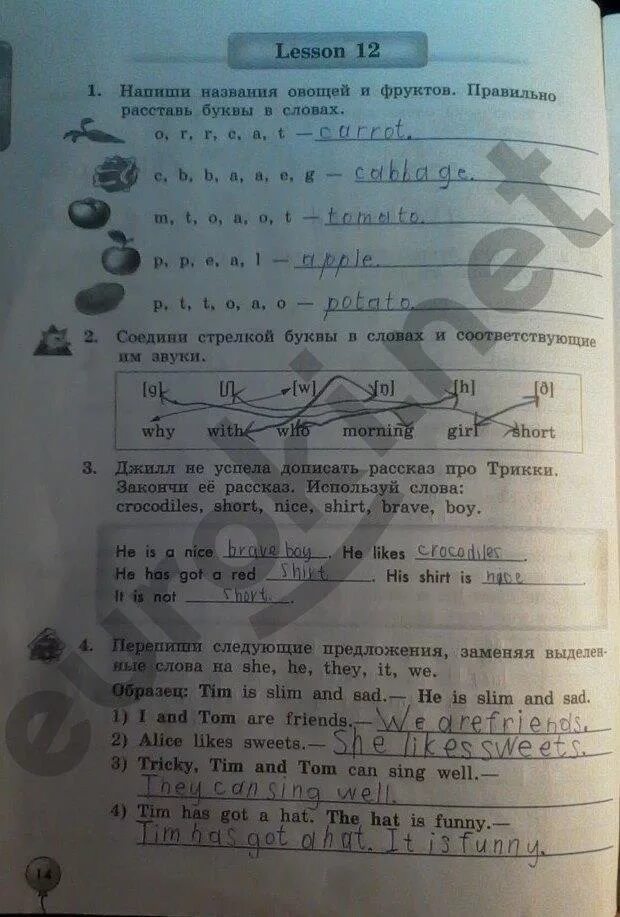 Lesson 12
1. Напиши названия овощей и фруктов. Правильно
расставь буквы в словах.
o, r, r, c, a, t — carrot.
c, b, b, a, a, e, g — cabbage.
m, t, o, a, o, t — tomato.
p, p, e, a, l — apple.
p, t, t, o, a, o — potato
2. Соедини стрелкой буквы в словах и соответствующие
им звуки.
[g] [ʃ] [w] [ŋ] [h] [ð]
why with who morning girl short
3. Джилл не успела дописать рассказ про Трикки.
Закончи её рассказ. Используй слова:
crocodiles, short, nice, shirt, brave, boy.
He is a nice brave boy. He likes crocodiles.
He has got a red shirt. His shirt is nice.
It is not short.
4. Перепиши следующие предложения, заменяя выделен-
ные слова на she, he, they, it, we.
Образец: Tim is slim and sad.— He is slim and sad.
1) I and Tom are friends.— We are friends.
2) Alice likes sweets.— She likes sweets.
3) Tricky, Tim and Tom can sing well.—
They can sing well.
4) Tim has got a hat. The hat is funny.—
Tim has got a hat. It is funny.
14
euroki.net